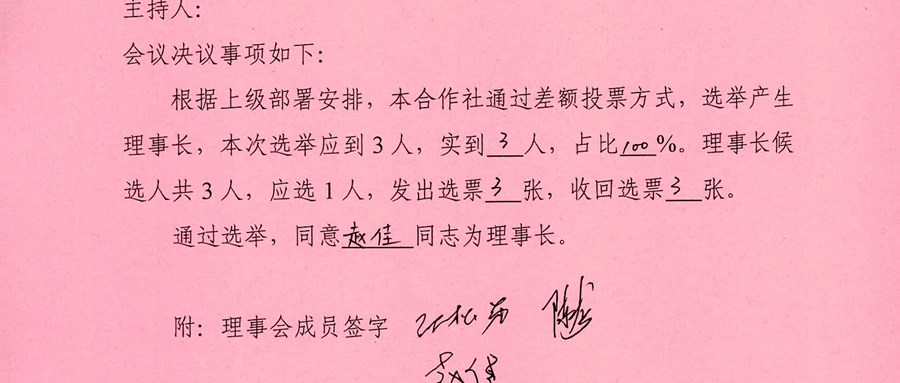 主持人：
会议决议事项如下：
根据上级部署安排，本合作社通过差额投票方式，选举产生
理事长，本次选举应到3人，实到3人，占比100%。理事长候
选人共3人，应选1人，发出选票3张，收回选票3张。
通过选举，同意赵佳同志为理事长。
附：理事会成员签字
赵佳